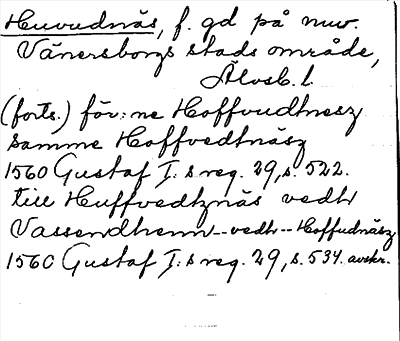 Huvudnäs, f. gd på nuv.
Vänersborgs stads område,
Älvsb. l.
(forts.) för: ne Hoffvudtnesz
samme Hoffvedtnäsz
1560 Gustaf I: s reg. 29, s. 522.
till Huffvedtznäs vedh
Vassendhenn -- vedh -- Hoffudnäsz
1560 Gustaf I: s reg. 29, s. 534. avskr.